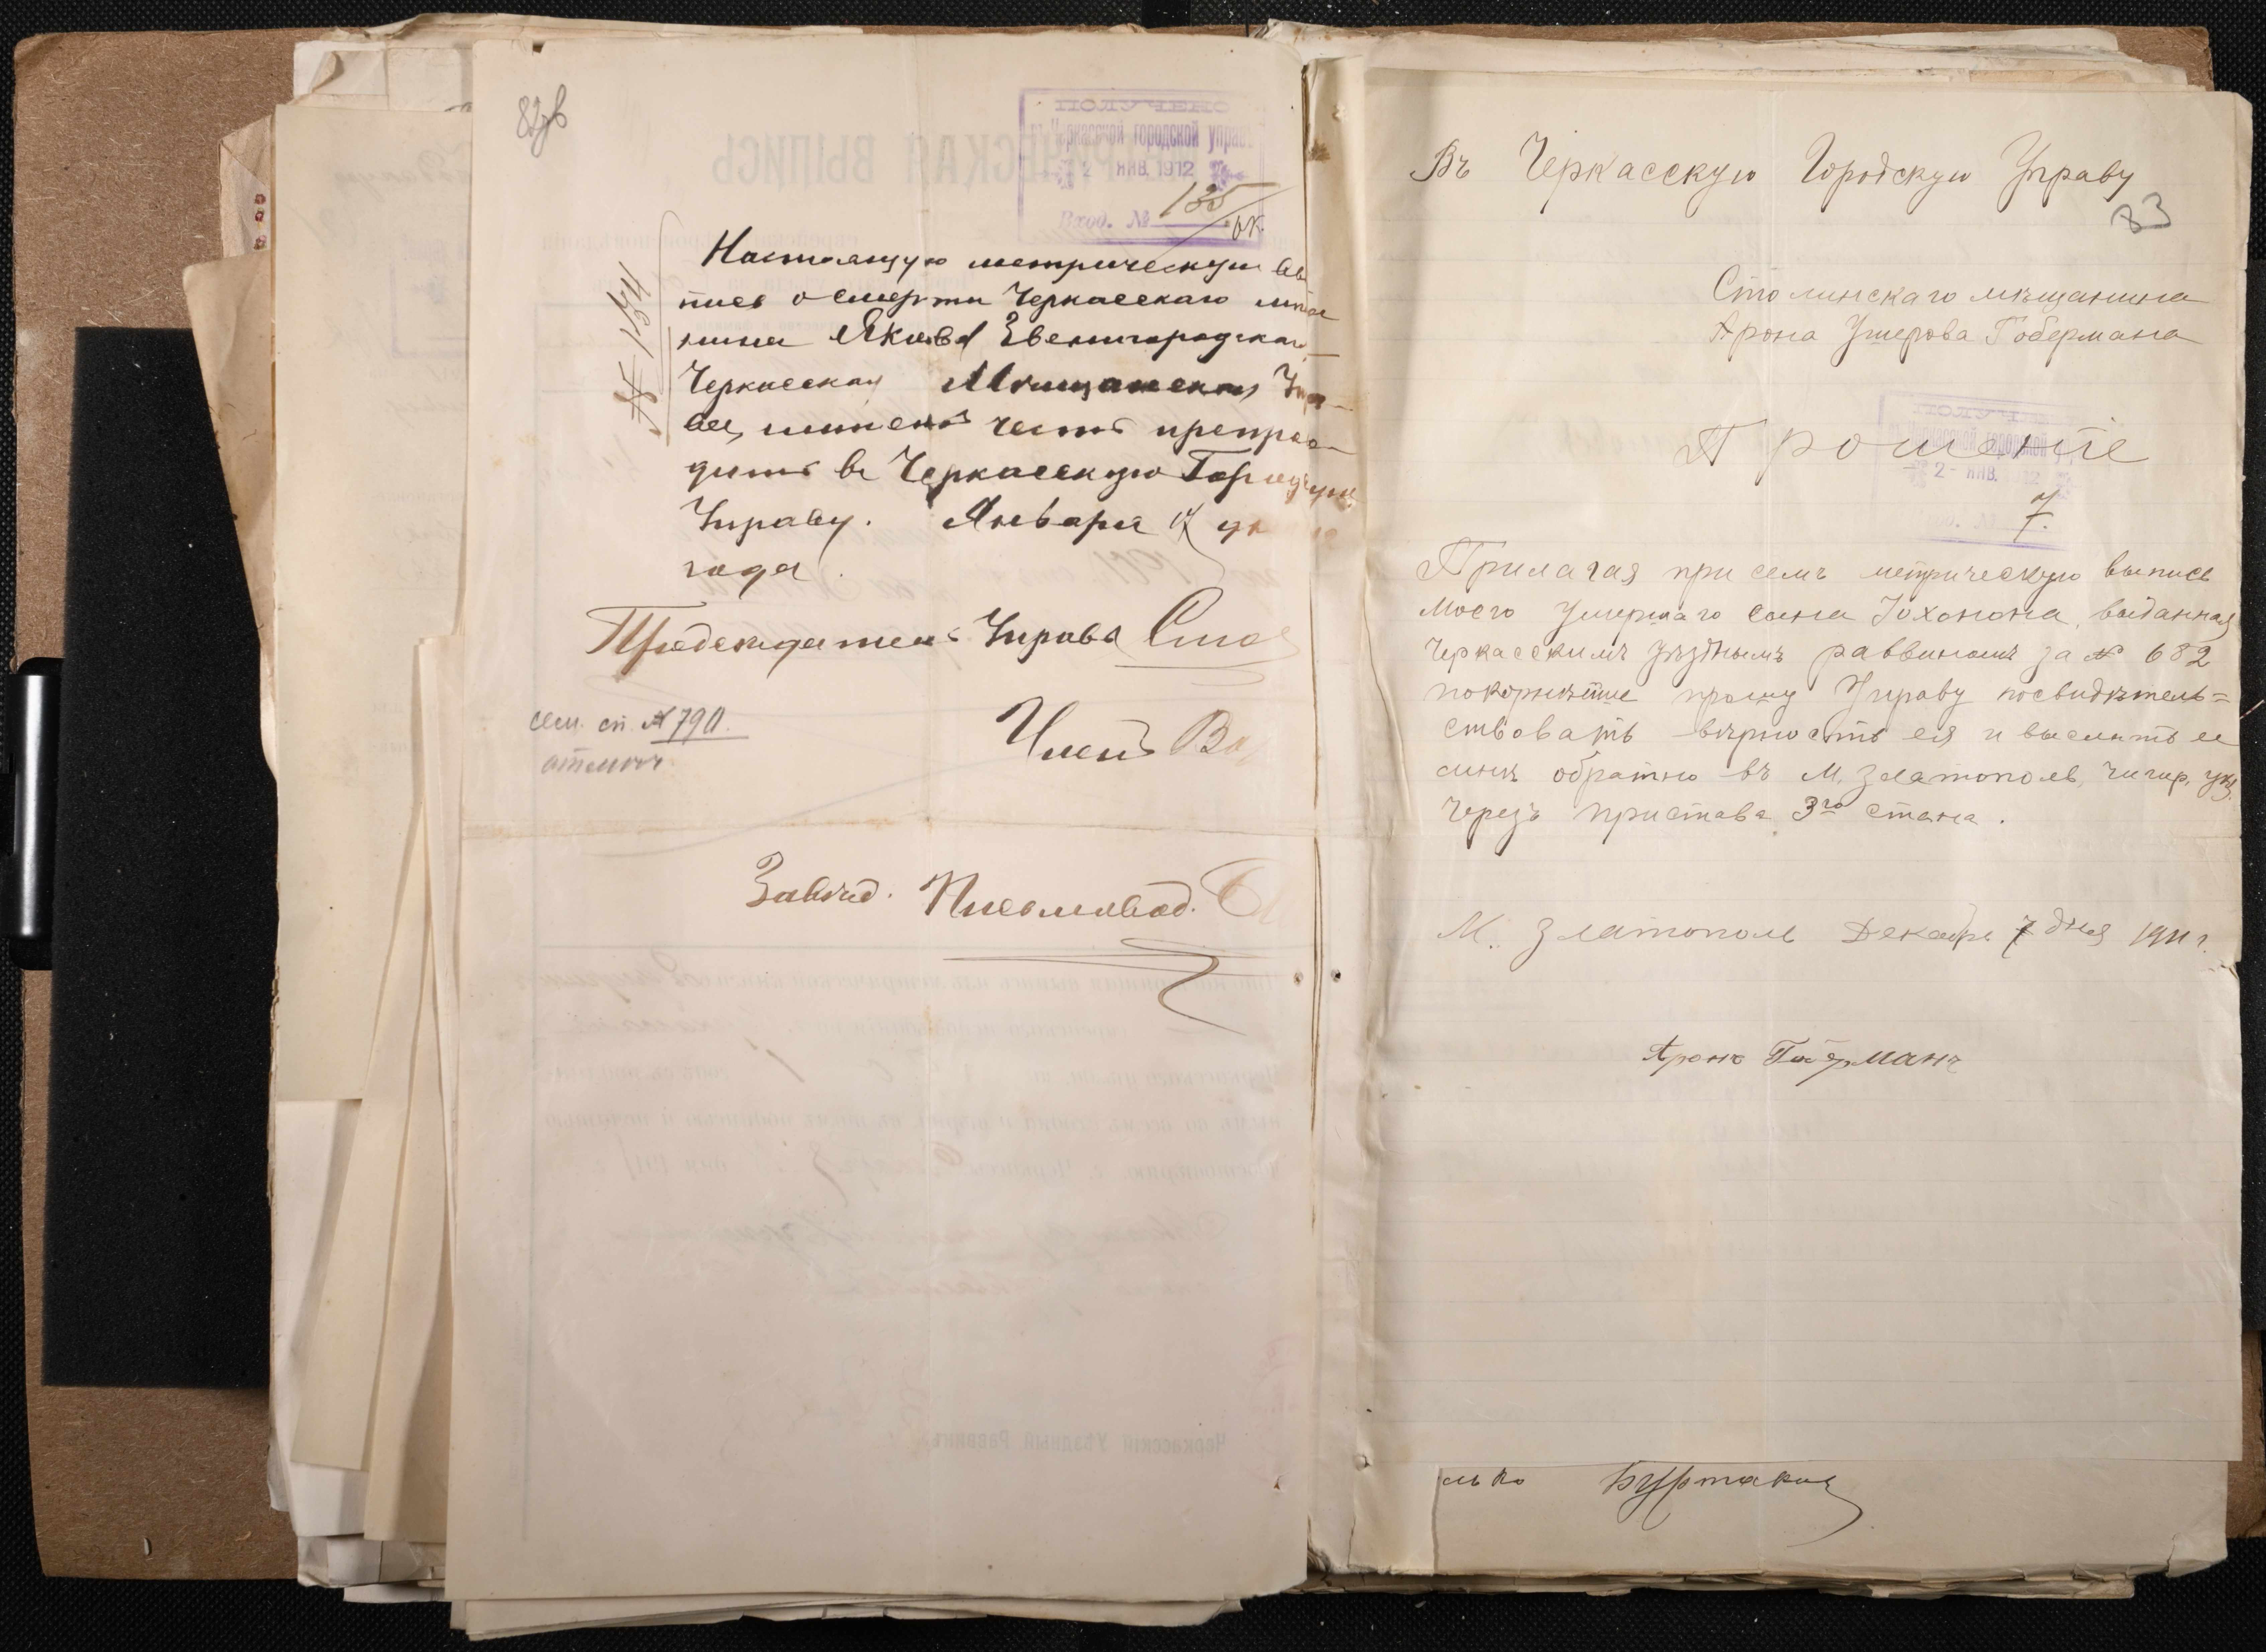 82об
въ Черкасской городской управ
2 ЯНВ. 1912
Вход. № 135
№ 134
Настоящую метрическую вы
пись о смерти Черкасскаго мѣща
нина Якова Звенигородскаго
Черкасская Мѣщанская Упра
ва, имѣетъ честь препрово
дить въ Черкасскую Городскую
Управу. Января
года.
Предсѣдатель Управы
сем. сп. № 790.
Членъ
Завѣд. Письмовод.
Въ Черкасскую Городскую Управу
83
Столинскаго мѣщанина
Арона Ушерова Гобермана
Прошеніе
2 ЯНВ.
7.
Прилагая при семъ метрическую выпись
моего умершаго сына Іохонона, выданная
Черкасскимъ уѣзднымъ раввиномъ за № 682
покорнѣйше прошу Управу посвидѣтель=
ствовать вѣрность ея и выслать ее
мнѣ обратно въ М. Златополь, Чигир. уѣз.
черезъ пристава 3го стана.
М. Златополь Декабря 7 дня 1911 г.
Аронъ Гоберманъ